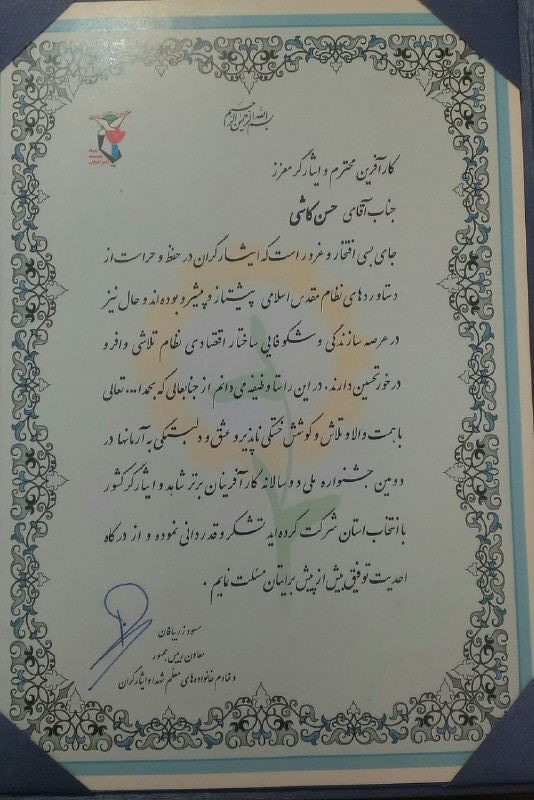 بسم الله الرحمن الرحیم
کارآفرین محترم و ایثارگر معزز
جناب آقای حسن کاشی
جای بسی افتخار و غرور است که ایثارگران در حفظ و حراست از
دستاوردهای نظام مقدس اسلامی پیشتاز و پیشرو بوده‌اند و حال نیز
در عرصه سازندگی و شکوفایی ساختار اقتصادی نظام تلاشی وافر و
در خور تحسین دارند. در این راستا وظیفه می‌دانم از جنابعالی که بحمدا... تعالی
با همت والا و تلاش و کوشش خستگی ناپذیر و عشق و دلبستگی به آرمانها در
دومین جشنواره ملی دو سالانه کارآفرینان برتر شاهد و ایثارگر کشور
با انتخاب استان شرکت کرده‌اید تشکر و قدردانی نموده و از درگاه
احدیت توفیق بیش از پیش برایتان مسئلت نمایم.
مسعود زریبافان
معاون رییس جمهور
و خادم خانواده‌های معظم شهدا و ایثارگران